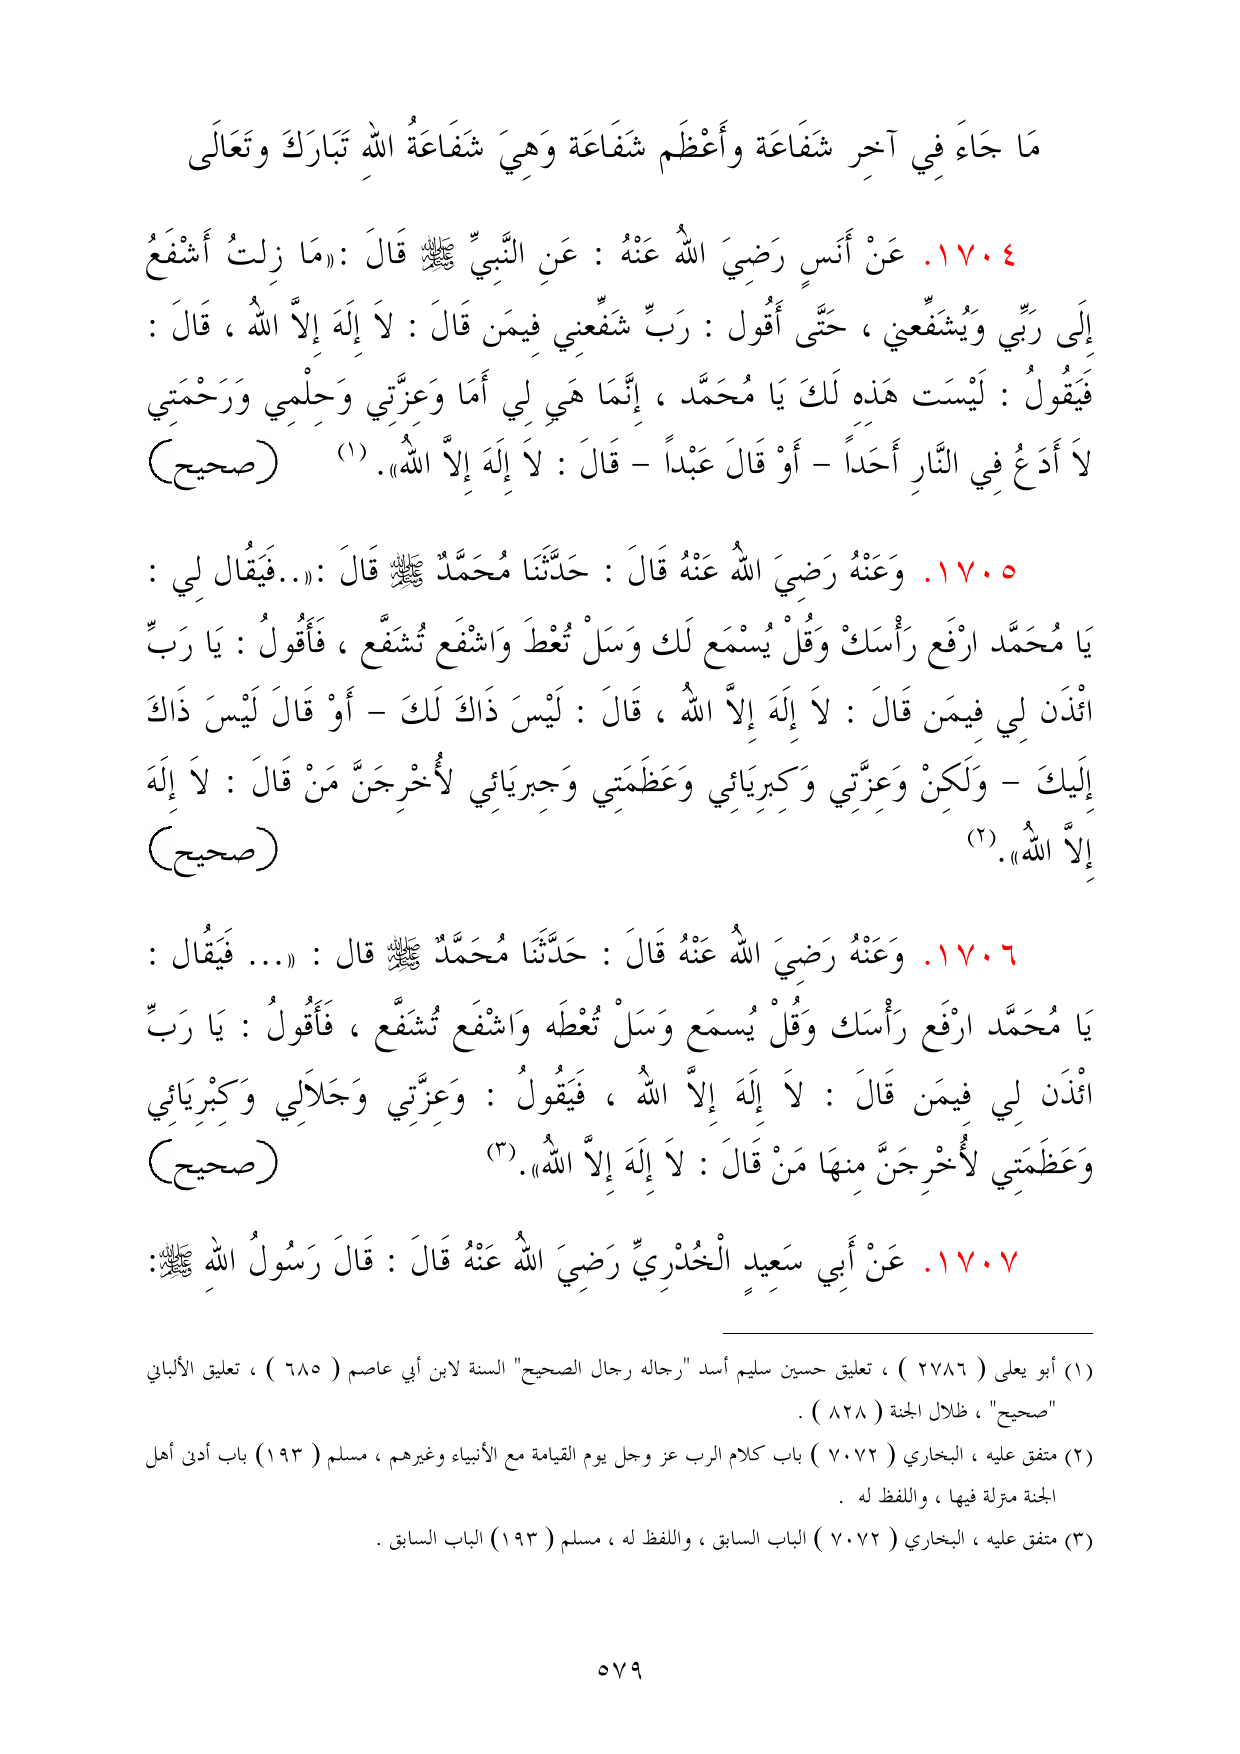 مَا جَاءَ فِي آخِر شَفَاعَة وأَعْظَم شَفَاعَة وَهِيَ شَفَاعَةُ اللهِ تَبَارَكَ وتَعَالَى
١٧٠٤. عَنْ أَنَسٍ رَضِيَ اللهُ عَنْهُ : عَنِ النَّبِيِّ ﷺ قَالَ :«مَا زِلتُ أَشْفَعُ
إِلَى رَبِّي وَيُشَفِّعني ، حَتَّى أَقُول : رَبِّ شَفِّعنِي فِيمَن قَالَ : لاَ إِلَهَ إِلاَّ اللهُ ، قَالَ :
فَيَقُولُ : لَيْسَت هَذِهِ لَكَ يَا مُحَمَّد ، إِنَّمَا هَي لِي أَمَا وَعِزَّتِي وَحِلْمِي وَرَحْمَتِي
لاَ أَدَعُ فِي النَّارِ أَحَداً – أَوْ قَالَ عَبْداً – قَالَ : لاَ إِلَهَ إِلاَّ اللهُ». (١) (صحيح)
١٧٠٥. وَعَنْهُ رَضِيَ اللهُ عَنْهُ قَالَ : حَدَّثَنَا مُحَمَّدٌ ﷺ قَالَ :«..فَيَقُال لِي :
يَا مُحَمَّد ارْفَع رَأْسَكْ وَقُلْ يُسْمَع لَك وَسَلْ تُعْطَ وَاشْفَع تُشَفَّع ، فَأَقُولُ : يَا رَبِّ
ائْذَن لِي فِيمَن قَالَ : لاَ إِلَهَ إِلاَّ اللهُ ، قَالَ : لَيْسَ ذَاكَ لَكَ – أَوْ قَالَ لَيْسَ ذَاكَ
إِلَيكَ – وَلَكِنْ وَعِزَّتِي وَكِبرِيَائِي وَعَظَمَتِي وَجِبرِيَائِي لأُخْرِجَنَّ مَنْ قَالَ : لاَ إِلَهَ
إِلاَّ اللهُ».(٢) (صحيح)
١٧٠٦. وَعَنْهُ رَضِيَ اللهُ عَنْهُ قَالَ : حَدَّثَنَا مُحَمَّدٌ ﷺ قال : «... فَيَقُال :
يَا مُحَمَّد ارْفَع رَأْسَك وَقُلْ يُسمَع وَسَلْ تُعْطَه وَاشْفَع تُشَفَّع ، فَأَقُولُ : يَا رَبِّ
ائْذَن لِي فِيمَن قَالَ : لاَ إِلَهَ إِلاَّ اللهُ ، فَيَقُولُ : وَعِزَّتِي وَجَلاَلِي وَكِبْرِيَائِي
وَعَظَمَتِي لأُخْرِجَنَّ مِنهَا مَنْ قَالَ : لاَ إِلَهَ إِلاَّ اللهُ».(٣) (صحيح)
١٧٠٧. عَنْ أَبِي سَعِيدٍ الْخُدْرِيِّ رَضِيَ اللهُ عَنْهُ قَالَ : قَالَ رَسُولُ اللهِ ﷺ:
(١) أبو يعلى ( ٢٧٨٦ ) ، تعليق حسين سليم أسد "رجاله رجال الصحيح" السنة لابن أبي عاصم ( ٦٨٥ ) ، تعليق الألباني
"صحيح" ، ظلال الجنة ( ٨٢٨ ) .
(٢) متفق عليه ، البخاري ( ٧٠٧٢ ) باب كلام الرب عز وجل يوم القيامة مع الأنبياء وغيرهم ، مسلم ( ١٩٣) باب أدنى أهل
الجنة منزلة فيها ، واللفظ له .
(٣) متفق عليه ، البخاري ( ٧٠٧٢ ) الباب السابق ، واللفظ له ، مسلم ( ١٩٣) الباب السابق .
٥٧٩